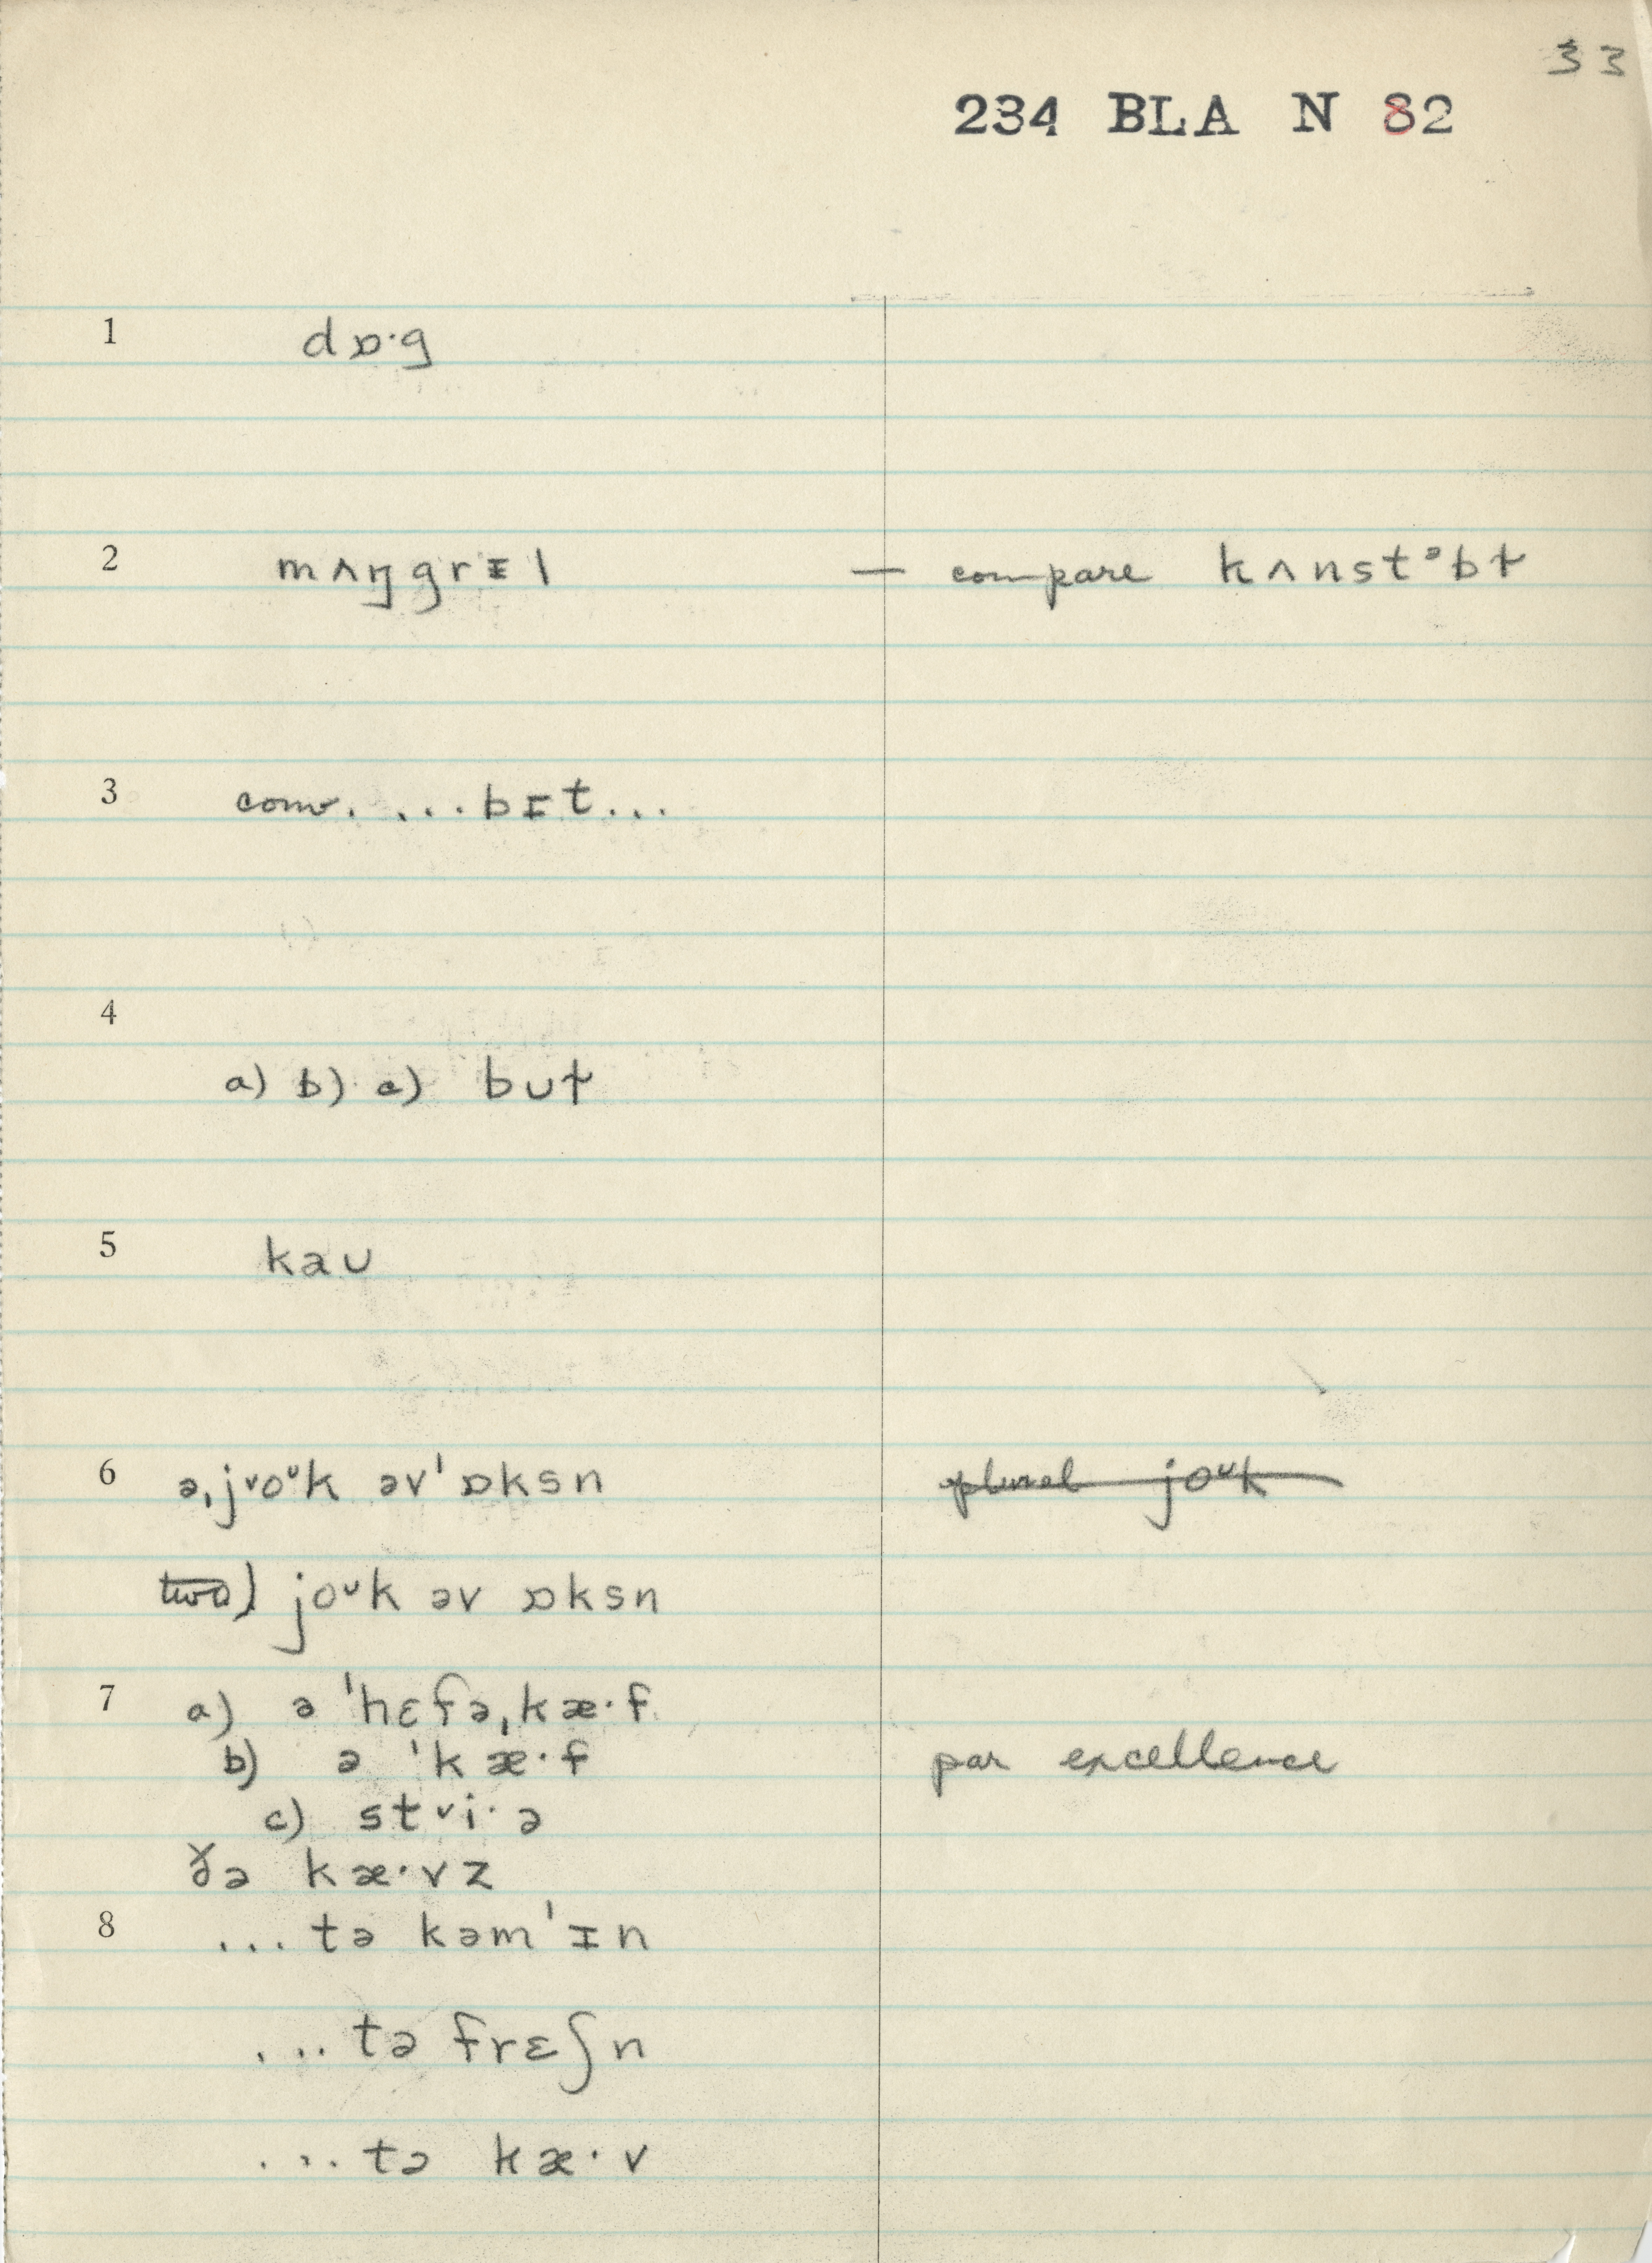 33
234 BLA N 82
1 dɒ·g
2 mʌŋgrɪl — compare kʌnstᵊbɫ
3 conv. ...bɪt...
4
a) b) c) bʊɫ
5 kaʊ
6 ə,jᵛoᵘk əv'ɒksn plural joᵘk
two) joᵘk əv ɒksn
7 a) ə 'hɛfə,kæ·f
b) ə 'kæ·f par excellence
c) stᵛi·ə
ðə kæ·vz
8 ...tə kəm'ɪn
...tə frɛʃn
...tə kæ·v